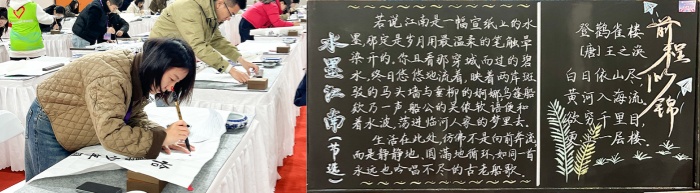 水墨江南(节选)
若说江南是一幅宣纸上的水
墨,那定是岁月用最温柔的笔触晕
染开的。你且看那穿城而过的碧
水,终日悠悠地流着,映着两岸斑
驳的马头墙与垂柳的婀娜。乌篷船
欸乃一声,船公的吴侬软语便和
着水波,荡进临河人家的梦里去。
生活在此处,仿佛不是向前奔流,
而是静静地、圆满地循环,如同一首
永远也吟唱不尽的古老船歌。
登鹳雀楼
[唐]王之涣
白日依山尽,
黄河入海流。
欲穷千里目,
更上一层楼。
前程似锦